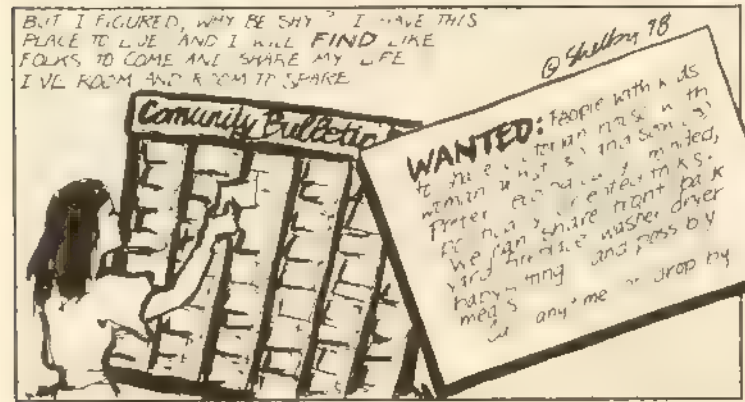 BUT I FIGURED, WHY BE SHY? I HAVE THIS
PLACE TO LIVE AND I WILL FIND LIKE
FOLKS TO COME AND SHARE MY LIFE
I'VE ROOM AND ROOM TO SPARE
© Shelby 98
Comunity Bulletin
WANTED: People with kids
to share victorian house with
woman
Prefer minded,
oriented folks.
We can share front back
yard fireplace washer dryer
babysitting and possibly
meals
Call anytime or drop by